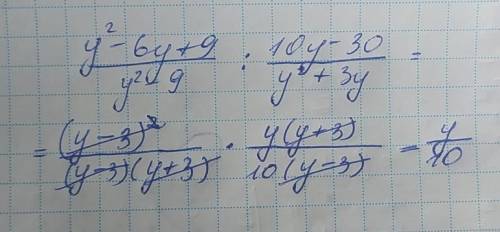 (y² - 6y + 9)/(y² - 9) : (10y - 30)/(y² + 3y) =
= (y - 3)²/((y - 3)(y + 3)) · y(y + 3)/(10(y - 3)) = y/10